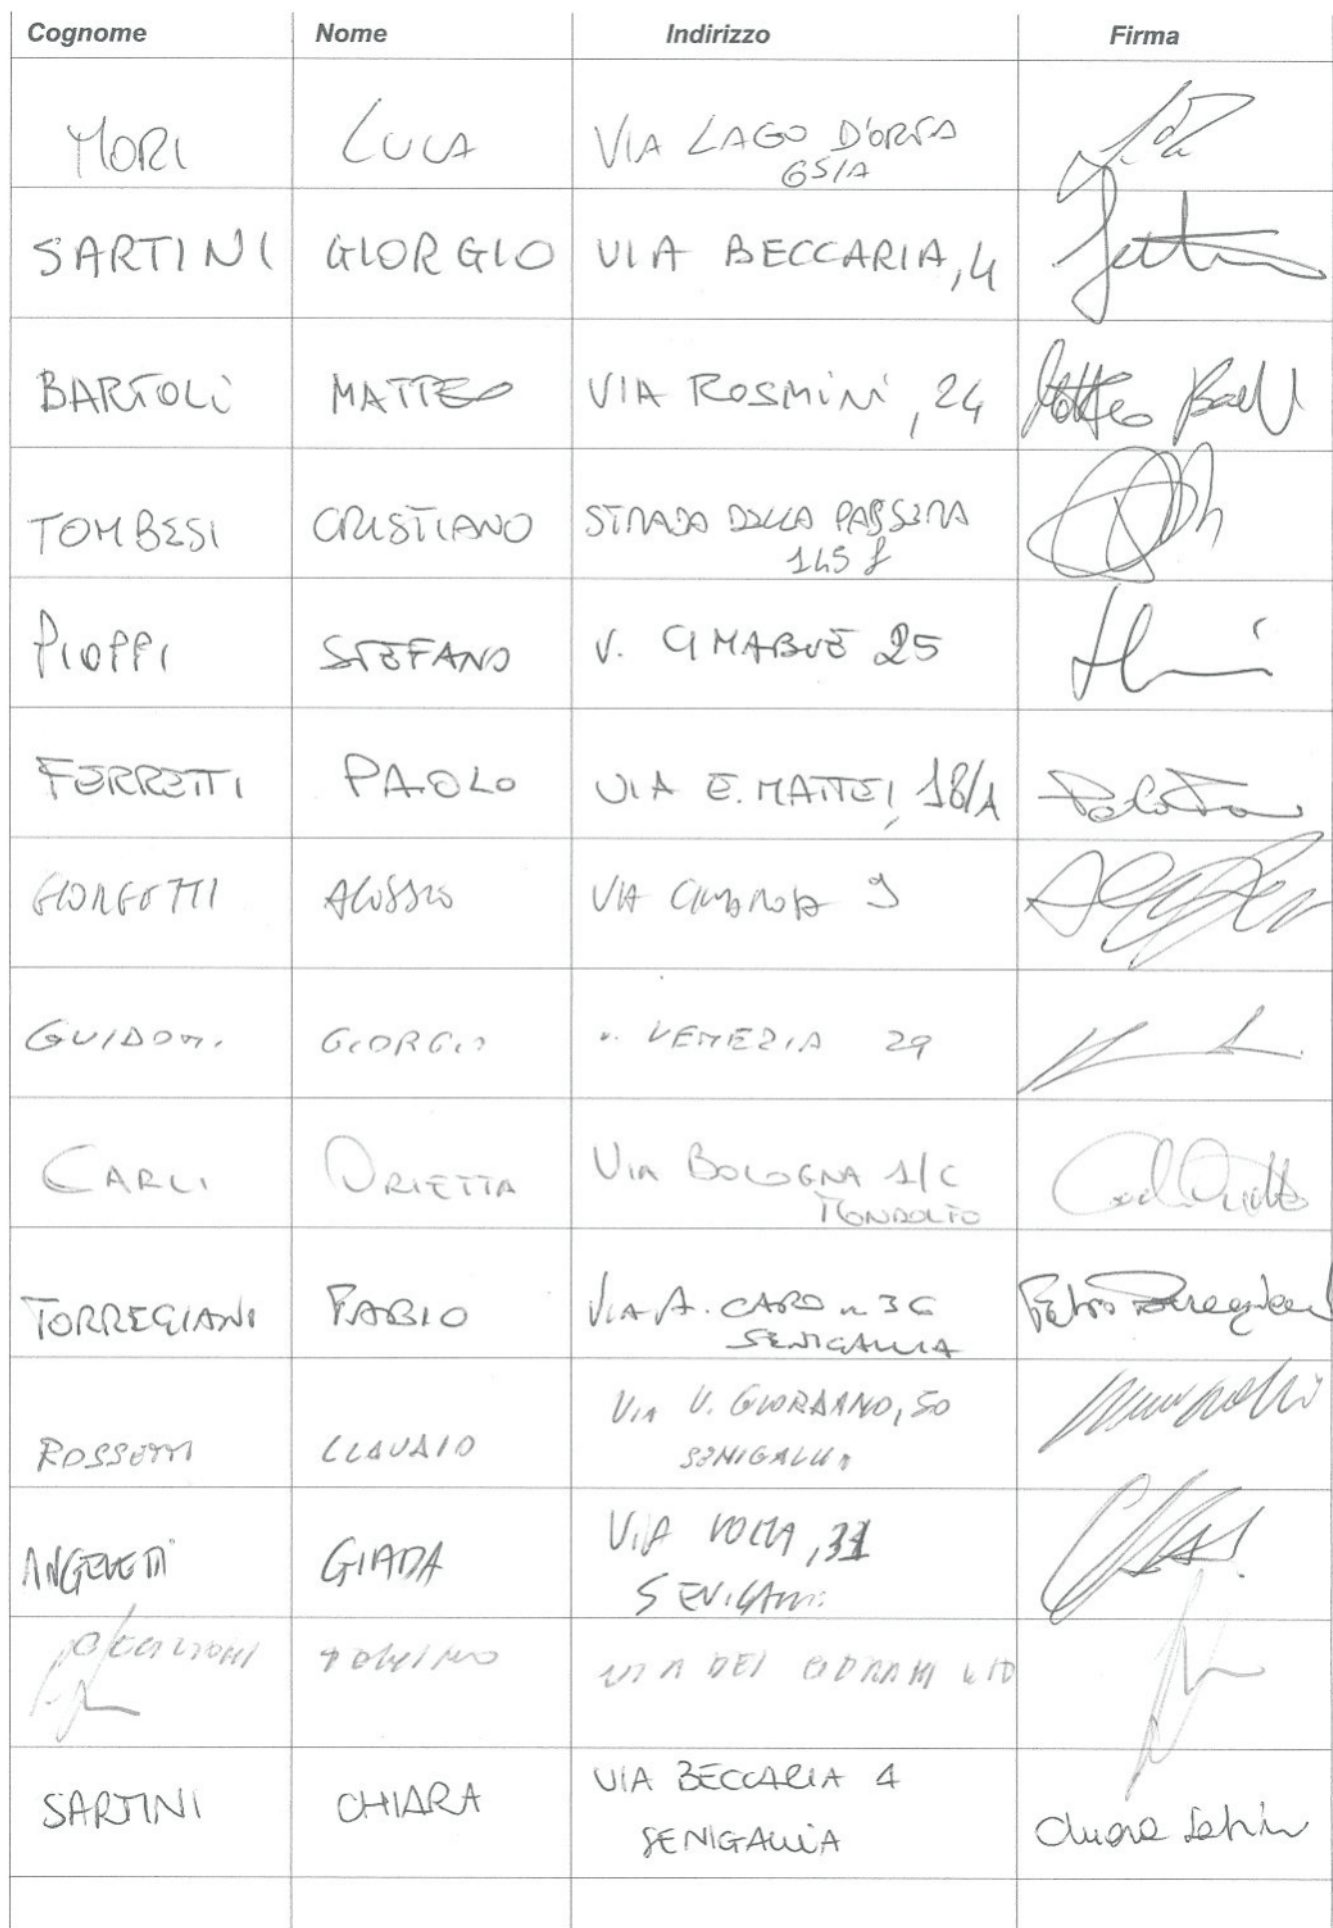 Cognome Nome Indirizzo Firma
MORI LUCA VIA LAGO D'ORTA
65/A
SARTINI GIORGIO VIA BECCARIA, 4
BARTOLI MATTEO VIA ROSMINI, 24 Matteo
TOMBESI CRISTIANO STRADA DELLA PASSERA
145 f
PIOPPI STEFANO V. CIMABUE 25
FERRETTI PAOLO VIA E. MATTEI, 18/A
GIORGETTI ALESSIO VIA CIMAROSA 9
GUIDONI GIORGIO V. VENEZIA 29
CARLI ORIETTA VIA BOLOGNA 1/C Carli Orietta
MONDOLFO
TORREGIANI FABIO VIA A. CARO n 36 Fabio Torregiani
SENIGALLIA
ROSSETTI CLAUDIO VIA U. GIORDANO, 50
SENIGALLIA
ANGELETTI GIADA VIA VOLTA, 31
SENIGALLIA
VIA DEI
SARTINI CHIARA VIA BECCARIA 4 Chiara Sartini
SENIGALLIA